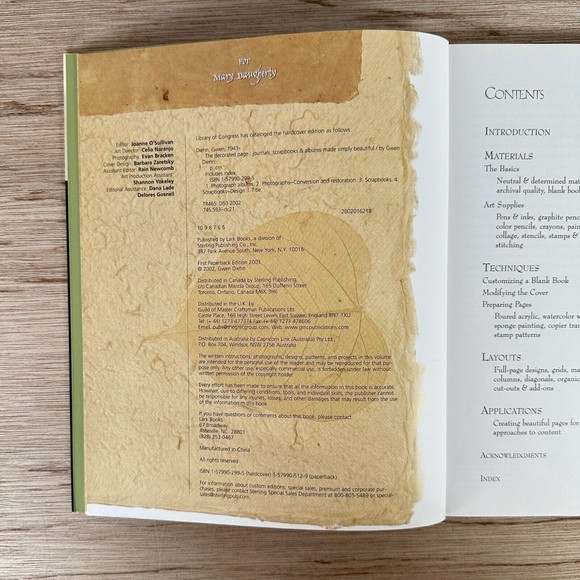 For
Mary Daugherty
Editor: Joanne O'Sullivan
Art Director: Celia Naranjo
Photography: Evan Bracken
Cover Design: Barbara Zaretsky
Assistant Editor: Rain Newcomb
Art Production Assistant:
Shannon Yokeley
Editorial Assistance: Dana Lade
Delores Gosnell
Library of Congress has cataloged the hardcover edition as follows
Diehn, Gwen, 1943-
The decorated page : journals, scrapbooks & albums made simply beautiful / by Gwen
Diehn.
p. cm.
Includes index.
ISBN 1-57990-299-5
1. Photograph albums. 2. Photographs--Conversion and restoration. 3. Scrapbooks. 4.
Scrapbooks--Design I. Title.
TR465 .D53 2002
745.593--dc21
2002016218
10 9 8 7 6 5
Published by Lark Books, a division of
Sterling Publishing Co., Inc.
387 Park Avenue South, New York, N.Y. 10016
First Paperback Edition 2003
© 2002, Gwen Diehn
Distributed in Canada by Sterling Publishing,
c/o Canadian Manda Group, 165 Dufferin Street
Toronto, Ontario, Canada M6K 3H6
Distributed in the U.K. by:
Guild of Master Craftsman Publications Ltd.
Castle Place, 166 High Street, Lewes, East Sussex, England BN7 1XU
Tel: (+ 44) 1273 477374, Fax: (+ 44) 1273 478606
Email: pubs@thegmcgroup.com, Web: www.gmcpublications.com
Distributed in Australia by Capricorn Link (Australia) Pty Ltd.,
P.O. Box 704, Windsor, NSW 2756 Australia
The written instructions, photographs, designs, patterns, and projects in this volume
are intended for the personal use of the reader and may be reproduced for that pur-
pose only. Any other use, especially commercial use, is forbidden under law without
written permission of the copyright holder.
Every effort has been made to ensure that all the information in this book is accurate.
However, due to differing conditions, tools, and individual skills, the publisher cannot
be responsible for any injuries, losses, and other damages that may result from the use
of the information in this book.
If you have questions or comments about this book, please contact:
Lark Books
67 Broadway
Asheville, NC 28801
(828) 253-0467
Manufactured in China
All rights reserved
ISBN 1-57990-299-5 (hardcover) 1-57990-512-9 (paperback)
For information about custom editions, special sales, premium and corporate pur-
chases, please contact Sterling Special Sales Department at 800-805-5489 or special-
sales@sterlingpub.com.
Contents
Introduction
Materials
The Basics
Neutral & determined mat
archival quality, blank book
Art Supplies
Pens & inks, graphite penc
color pencils, crayons, pain
collage, stencils, stamps &
stitching
Techniques
Customizing a Blank Book
Modifying the Cover
Preparing Pages
Poured acrylic, watercolor w
sponge painting, copier tran
stamp patterns
Layouts
Full-page designs, grids, ma
columns, diagonals, organic
cut-outs & add-ons
Applications
Creating beautiful pages for
approaches to content
Acknowledgments
Index